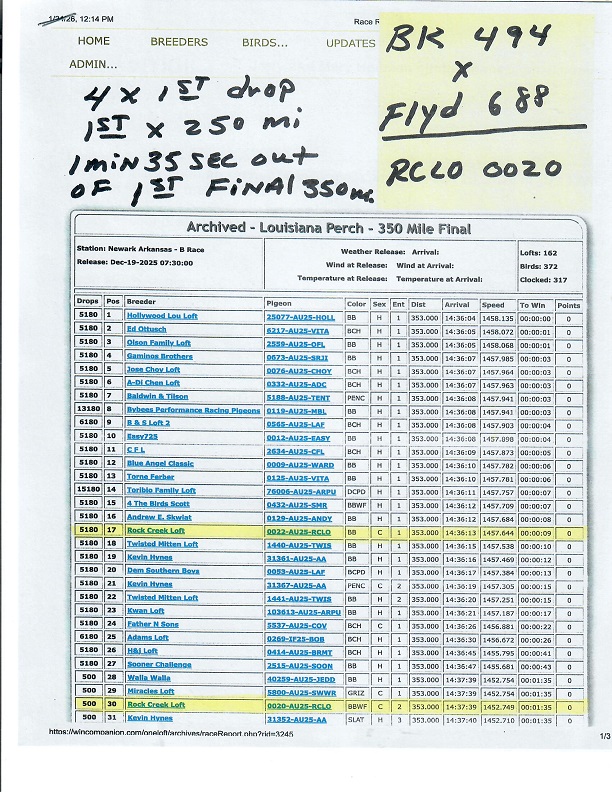 1/21/26, 12:14 PM Race R
HOME BREEDERS BIRDS... UPDATES
ADMIN...
BK 494
x
Flyd 688
RCLO 0020
4 x 1ST drop
1ST x 250 mi
1 min 35 SEC out
OF 1ST FINAL 350 mi
Archived - Louisiana Perch - 350 Mile Final
Station: Newark Arkansas - B Race
Release: Dec-19-2025 07:30:00
Weather Release: Arrival:
Wind at Release: Wind at Arrival:
Temperature at Release: Temperature at Arrival:
Lofts: 162
Birds: 372
Clocked: 317
Drops Pos Breeder Pigeon Color Sex Ent Dist Arrival Speed To Win Points
5180 1 Hollywood Lou Loft 25077-AU25-HOLL BB H 1 353.000 14:36:04 1458.135 00:00:00 0
5180 2 Ed Ottusch 6217-AU25-VITA BCH H 1 353.000 14:36:05 1458.072 00:00:01 0
5180 3 Olson Family Loft 2559-AU25-OFL BB H 1 353.000 14:36:05 1458.068 00:00:01 0
5180 4 Gaminos Brothers 0673-AU25-SRJI BB H 1 353.000 14:36:07 1457.985 00:00:03 0
5180 5 Jose Choy Loft 0076-AU25-CHOY BCH H 1 353.000 14:36:07 1457.964 00:00:03 0
5180 6 A-Di Chen Loft 0332-AU25-ADC BCH H 1 353.000 14:36:07 1457.963 00:00:03 0
5180 7 Baldwin & Tilson 5188-AU25-TENT PENC H 1 353.000 14:36:08 1457.941 00:00:03 0
13180 8 Bybees Performance Racing Pigeons 0119-AU25-MBL BB H 1 353.000 14:36:08 1457.941 00:00:03 0
6180 9 B & S Loft 2 0565-AU25-LAF BCH H 1 353.000 14:36:08 1457.903 00:00:04 0
5180 10 Easy725 0012-AU25-EASY BB H 1 353.000 14:36:08 1457.898 00:00:04 0
5180 11 C F L 2634-AU25-CFL BCH H 1 353.000 14:36:09 1457.873 00:00:05 0
5180 12 Blue Angel Classic 0009-AU25-WARD BB H 1 353.000 14:36:10 1457.782 00:00:06 0
5180 13 Torne Ferber 0125-AU25-VITA BB H 1 353.000 14:36:10 1457.781 00:00:06 0
15180 14 Toribio Family Loft 76006-AU25-ARPU DCPD H 1 353.000 14:36:11 1457.757 00:00:07 0
5180 15 4 The Birds Scott 0432-AU25-SMR BBWF H 1 353.000 14:36:12 1457.709 00:00:07 0
5180 16 Andrew E. Skwiat 0129-AU25-ANDY BB H 1 353.000 14:36:12 1457.684 00:00:08 0
5180 17 Rock Creek Loft 0022-AU25-RCLO BB C 1 353.000 14:36:13 1457.644 00:00:09 0
5180 18 Twisted Mitten Loft 1440-AU25-TWIS BB H 1 353.000 14:36:15 1457.538 00:00:10 0
5180 19 Kevin Hynes 31361-AU25-AA BB H 1 353.000 14:36:16 1457.469 00:00:12 0
5180 20 Dem Southern Boys 0053-AU25-LAF BCPD H 1 353.000 14:36:17 1457.384 00:00:13 0
5180 21 Kevin Hynes 31367-AU25-AA PENC C 2 353.000 14:36:19 1457.305 00:00:15 0
5180 22 Twisted Mitten Loft 1441-AU25-TWIS BB H 2 353.000 14:36:20 1457.251 00:00:15 0
5180 23 Kwan Loft 103613-AU25-ARPU BB H 1 353.000 14:36:21 1457.187 00:00:17 0
5180 24 Father N Sons 5537-AU25-COV BCH C 1 353.000 14:36:26 1456.881 00:00:22 0
6180 25 Adams Loft 0269-IF25-BOB BCH H 1 353.000 14:36:30 1456.672 00:00:26 0
5180 26 H&J Loft 0414-AU25-BRMT BCH H 1 353.000 14:36:45 1455.795 00:00:41 0
5180 27 Sooner Challenge 2515-AU25-SOON BB H 1 353.000 14:36:47 1455.681 00:00:43 0
500 28 Walla Walla 40259-AU25-JEDD BB H 1 353.000 14:37:39 1452.754 00:01:35 0
500 29 Miracles Loft 5800-AU25-SWWR GRIZ C 1 353.000 14:37:39 1452.754 00:01:35 0
500 30 Rock Creek Loft 0020-AU25-RCLO BBWF C 2 353.000 14:37:39 1452.749 00:01:35 0
500 31 Kevin Hynes 31352-AU25-AA SLAT H 3 353.000 14:37:40 1452.710 00:01:35 0
https://wincompanion.com/oneloft/archives/raceReport.php?rid=3245 1/3